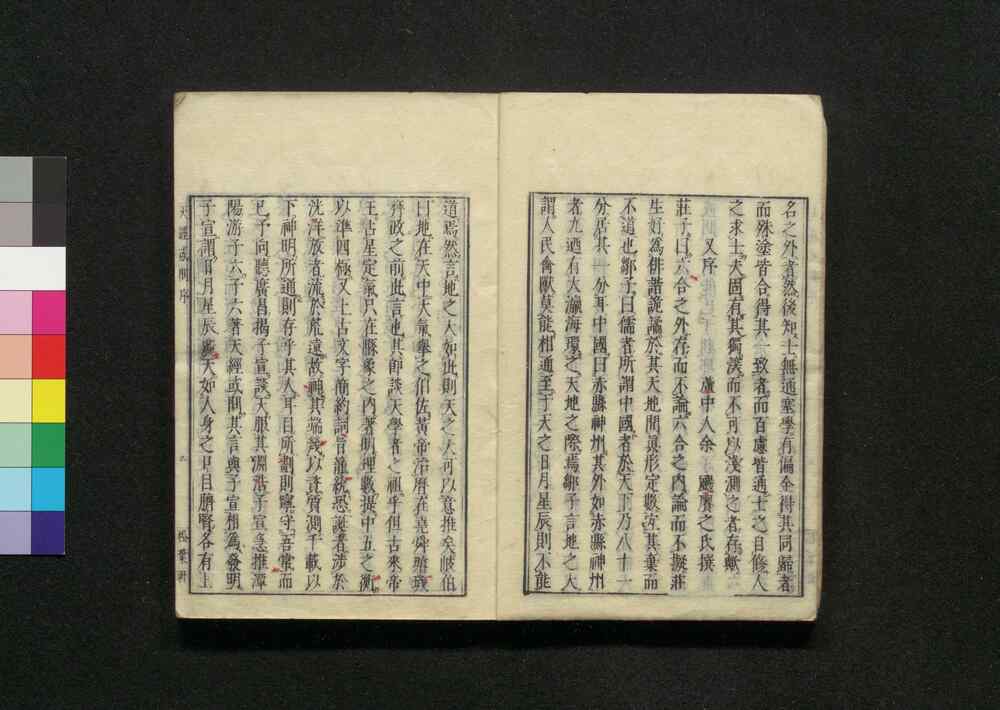 名之外者然後知士無通塞學有偏全得其同歸者
而殊塗皆合得其一致者而百慮皆通士之自脩人
之求士夫固有其獨深而不可以淺測之者存歟
又序 廬中人余颺賡之氏撰
莊子曰六合之外存而不論六合之内論而不擬莊
生好為俳諧詭譎於其天地間真形定數宜其棄而
不道也鄒子曰儒者所謂中國者於天下乃八十一
分居其一分耳中國曰赤縣神州其外如赤縣神州
者九迺有大瀛海環之天地之際焉鄒子言地之大
謂人民禽獸莫能相通至于天之日月星辰則不能
道焉然言地之大如此則天之大可以意推矣岐伯
曰地在天中大氣舉之伯佐黄帝治曆在堯舜璿璣
齊政之前此言也其師談天學者之祖乎但古來帝
王占星定氣只在縣象之内著明理數提中五之衡
以準四極又上古文字簡約詞旨籠統恐誕者涉於
洸洋放者流於荒遠故視其端幾以待質測千載以
下神明所通則存乎其人耳目所劃則寧守吾常而
已予向聽廣昌揭子宣談大服其淵浩子宣急推漳
陽游子六子六著天經或問其言與子宣相為發明
子宣謂日月星辰麗天如人身之耳目臍腎各有上
天經或問 序 二 松葉軒